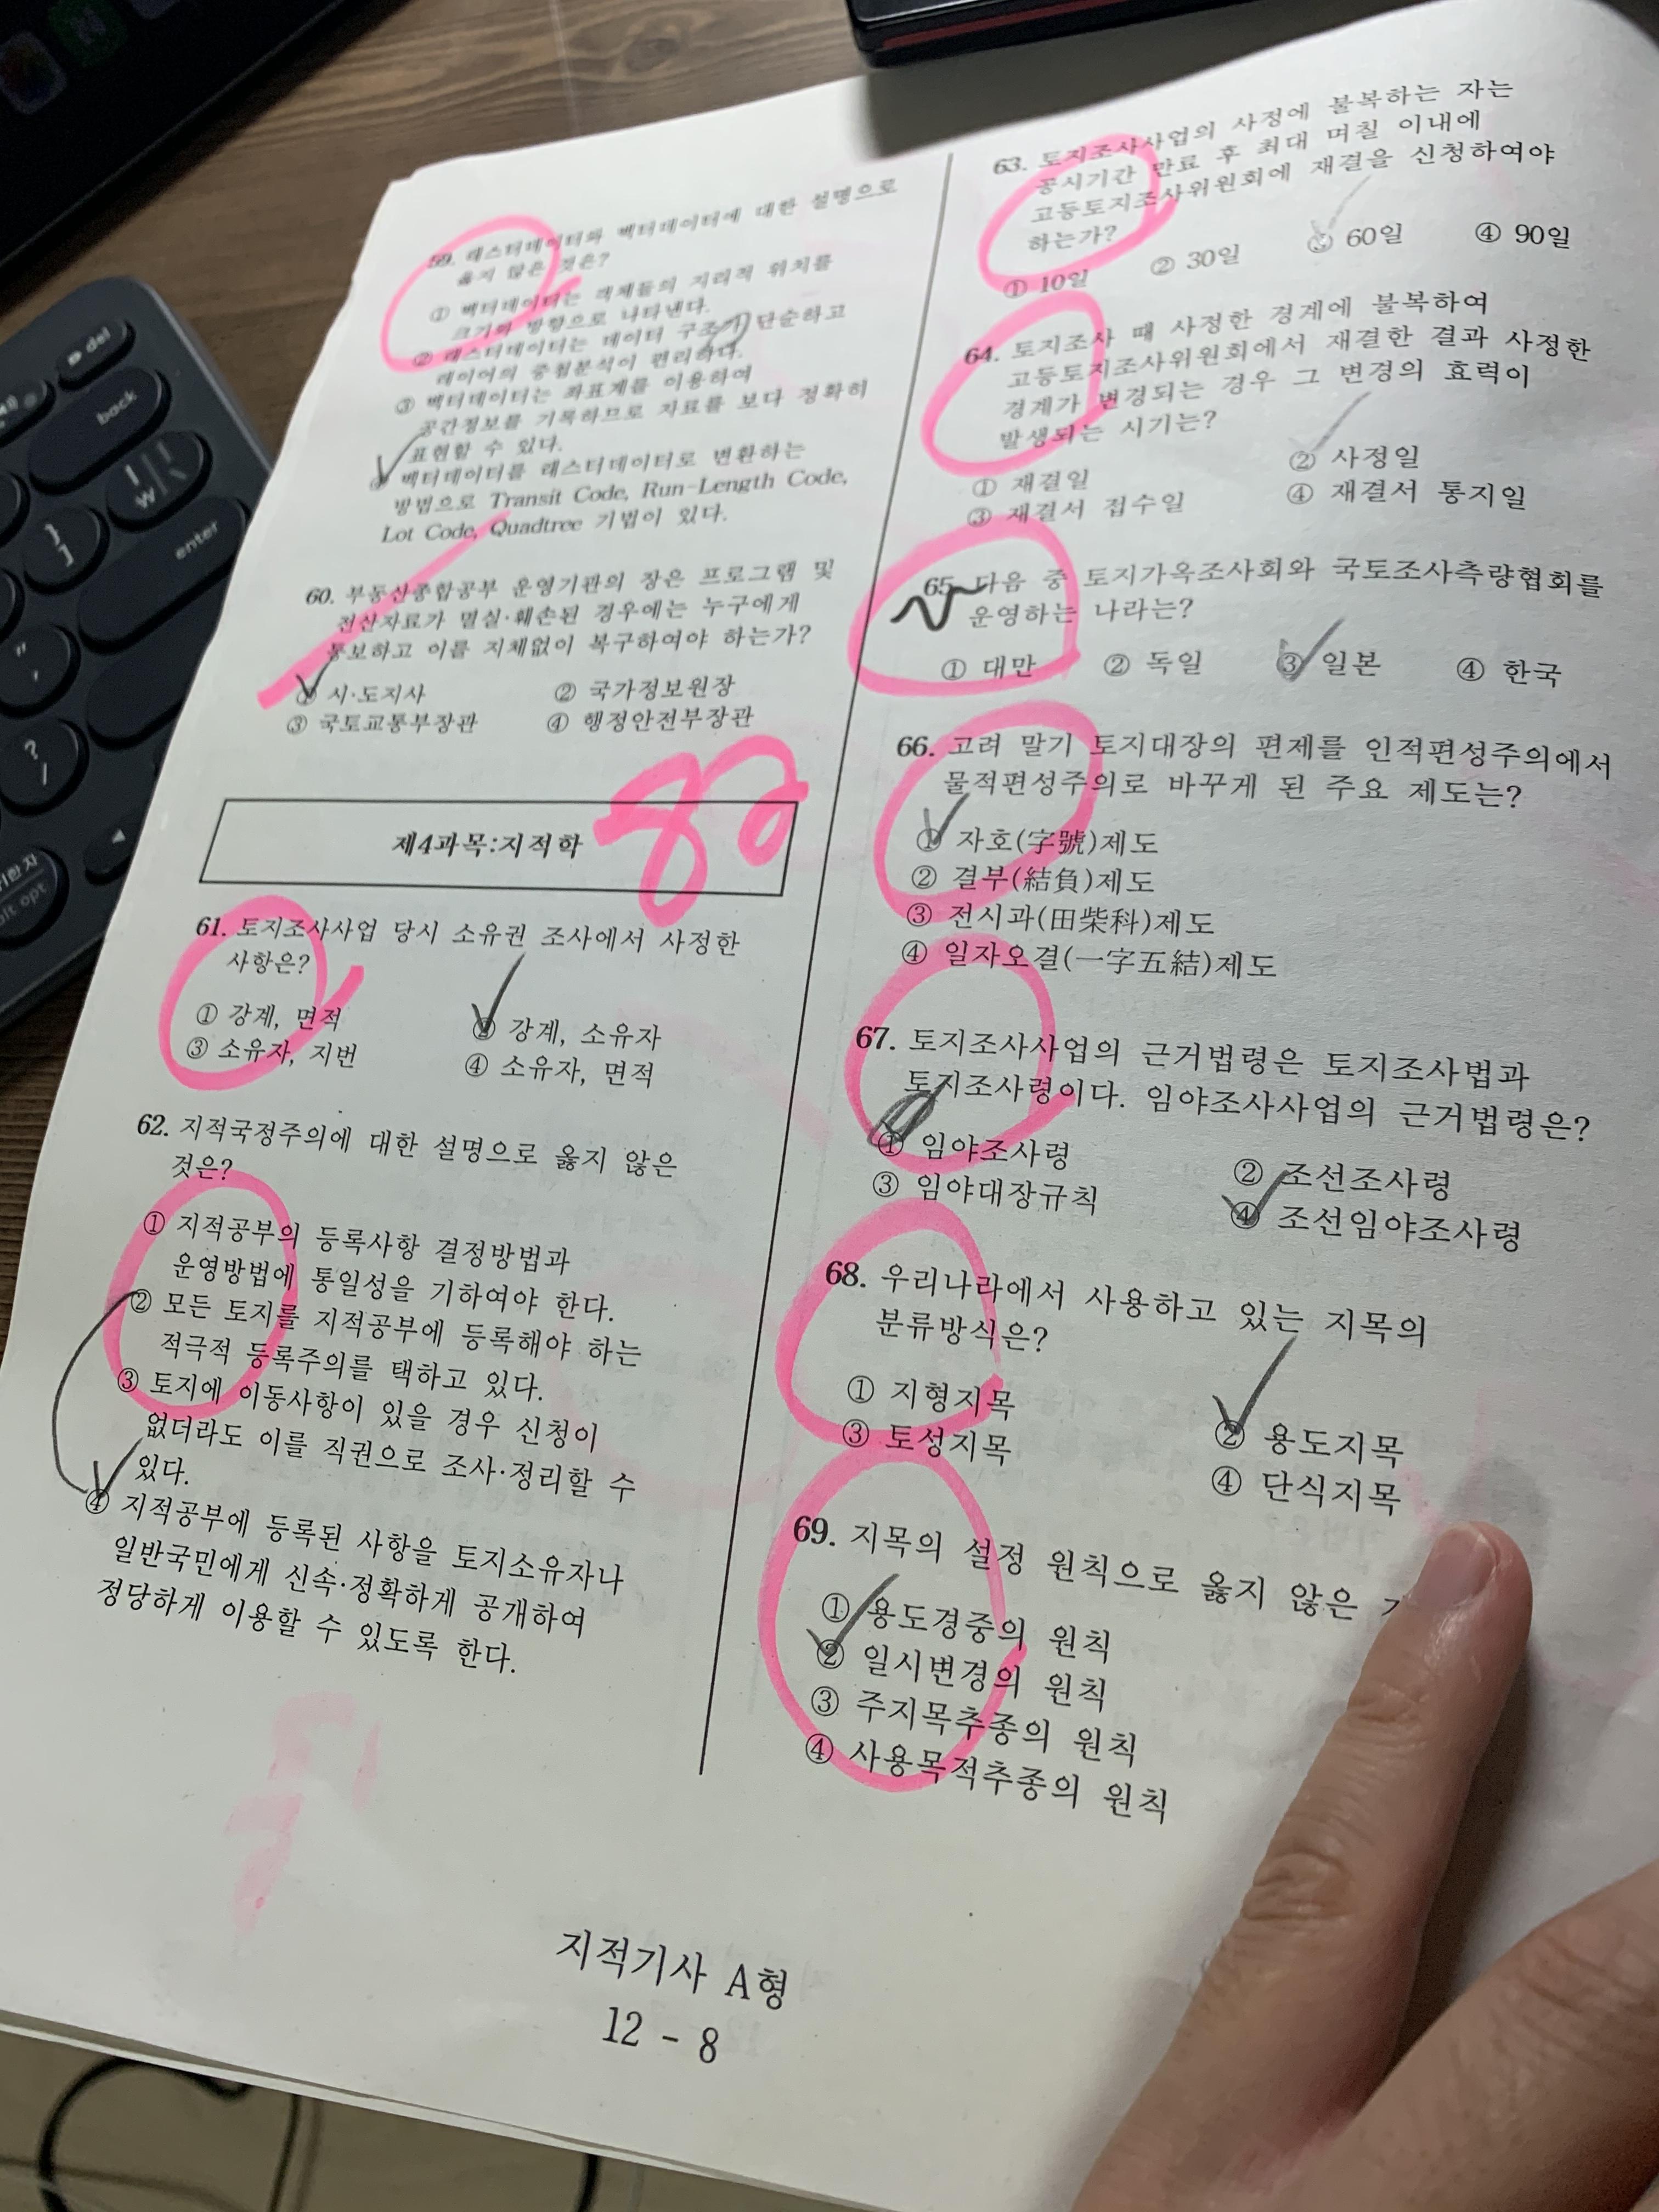 del
back
enter
59. 래스터데이터와 벡터데이터에 대한 설명으로
옳지 않은 것은?
① 벡터데이터는 객체들의 지리적 위치를
크기와 방향으로 나타낸다.
② 래스터데이터는 데이터 구조가 단순하고
레이어의 중첩분석이 편리하다.
③ 벡터데이터는 좌표계를 이용하여
공간정보를 기록하므로 자료를 보다 정확히
표현할 수 있다.
④ 벡터데이터를 래스터데이터로 변환하는
방법으로 Transit Code, Run-Length Code,
Lot Code, Quadtree 기법이 있다.
60. 부동산종합공부 운영기관의 장은 프로그램 및
전산자료가 멸실·훼손된 경우에는 누구에게
통보하고 이를 지체없이 복구하여야 하는가?
① 시·도지사 ② 국가정보원장
③ 국토교통부장관 ④ 행정안전부장관
82
제4과목:지적학
61. 토지조사사업 당시 소유권 조사에서 사정한
사항은?
① 강계, 면적 ② 강계, 소유자
③ 소유자, 지번 ④ 소유자, 면적
62. 지적국정주의에 대한 설명으로 옳지 않은
것은?
① 지적공부의 등록사항 결정방법과
운영방법에 통일성을 기하여야 한다.
② 모든 토지를 지적공부에 등록해야 하는
적극적 등록주의를 택하고 있다.
③ 토지에 이동사항이 있을 경우 신청이
없더라도 이를 직권으로 조사·정리할 수
있다.
④ 지적공부에 등록된 사항을 토지소유자나
일반국민에게 신속·정확하게 공개하여
정당하게 이용할 수 있도록 한다.
63. 토지조사사업의 사정에 불복하는 자는
공시기간 만료 후 최대 며칠 이내에
고등토지조사위원회에 재결을 신청하여야
하는가?
① 10일 ② 30일 ③ 60일 ④ 90일
64. 토지조사 때 사정한 경계에 불복하여
고등토지조사위원회에서 재결한 결과 사정한
경계가 변경되는 경우 그 변경의 효력이
발생되는 시기는?
① 재결일 ② 사정일
③ 재결서 접수일 ④ 재결서 통지일
65. 다음 중 토지가옥조사회와 국토조사측량협회를
운영하는 나라는?
① 대만 ② 독일 ③ 일본 ④ 한국
66. 고려 말기 토지대장의 편제를 인적편성주의에서
물적편성주의로 바꾸게 된 주요 제도는?
① 자호(字號)제도
② 결부(結負)제도
③ 전시과(田柴科)제도
④ 일자오결(一字五結)제도
67. 토지조사사업의 근거법령은 토지조사법과
토지조사령이다. 임야조사사업의 근거법령은?
① 임야조사령 ② 조선조사령
③ 임야대장규칙 ④ 조선임야조사령
68. 우리나라에서 사용하고 있는 지목의
분류방식은?
① 지형지목 ② 용도지목
③ 토성지목 ④ 단식지목
69. 지목의 설정 원칙으로 옳지 않은
① 용도경중의 원칙
② 일시변경의 원칙
③ 주지목추종의 원칙
④ 사용목적추종의 원칙
지적기사 A형
12 - 8